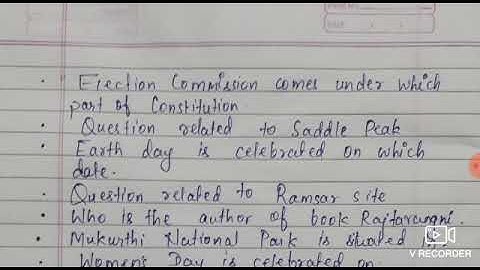 • Election Commission comes under which
part of Constitution.
• Question related to Saddle Peak
• Earth day is celebrated on which
date.
• Question related to Ramsar site
• Who is the author of book Rajtarangni.
• Mukurthi National Park is situated
• Women's Day is celebrated on
V RECORDER